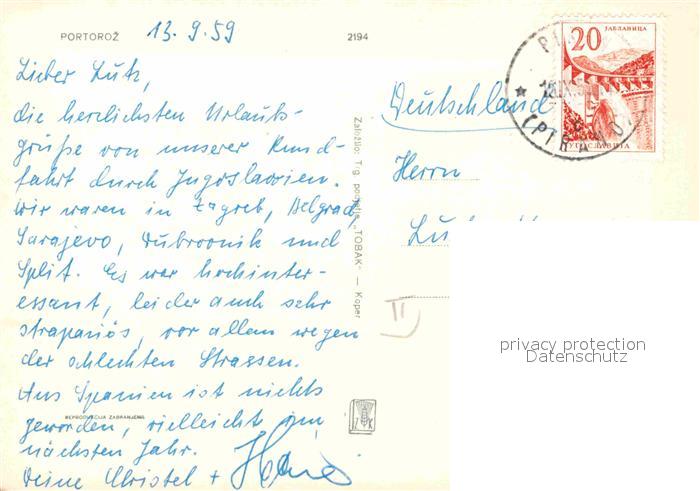 PORTOROŽ 13.9.59 2194
Lieber Lutz,
die herzlichsten Urlaubs-
grüße von unserer Rund-
fahrt durch Jugoslawien.
Wir waren in Zagreb, Belgrad,
Sarajevo, Dubrovnik und
Split. Es war hochinter-
essant, leider auch sehr
strapaziös, vor allem wegen
der schlechten Strassen.
Aus Spanien ist nichts
geworden, vielleicht im
nächsten Jahr.
Deine Christel +
REPRODUKCIJA ZABRANJENA
Založilo: Trg. podjetje „TOBAK" — Koper
20 ЈАБЛАНИЦА
JУГОСЛАВИЈА
(PIRAN)
Deutschland
Herrn
II
privacy protection
Datenschutz